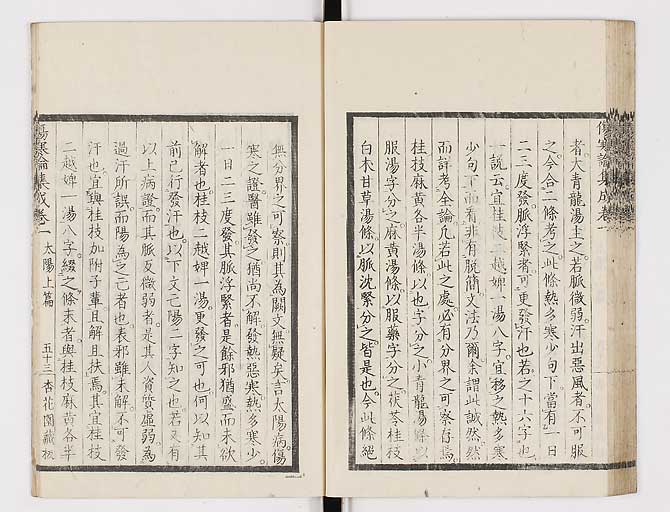 者大青龍湯主之若脈微弱汗出惡風者不可服
之今合二條考之此條熱多寒少句下當有一日
二三度發脈浮緊者可更發汗也若之十六字也
一說云宜桂枝二越婢一湯八字宜移之熱多寒
少句下而看非有脫簡文法乃爾余謂此誠然然
而詳考全論凡若此之處必有分界之可察存焉
桂枝麻黃各半湯條以也字分之小青龍湯條以
服湯字分之麻黃湯條以服藥字分之茯苓桂枝
白朮甘草湯條以脈沈緊分之皆是也今此條絕
傷寒論集成卷一
無分界之可察則其為闕文無疑矣言太陽病傷
寒之證醫雖發之猶尚不解發熱惡寒熱多寒少
一日二三度發其脈浮緊者是餘邪猶盛而未欲
解者也桂枝二越婢一湯更發之可也何以知其
前已行發汗也以下文亡陽二字知之也若又有
以上病證而其脈反微弱者是其人資質虛弱為
過汗所誤而陽為之亡者也表邪雖未解不可發
汗也宜與桂枝加附子輩且解且扶焉其宜桂枝
二越婢一湯八字綴之條末者與桂枝麻黃各半
傷寒論集成卷一 太陽上篇 五十三 杏花園藏板